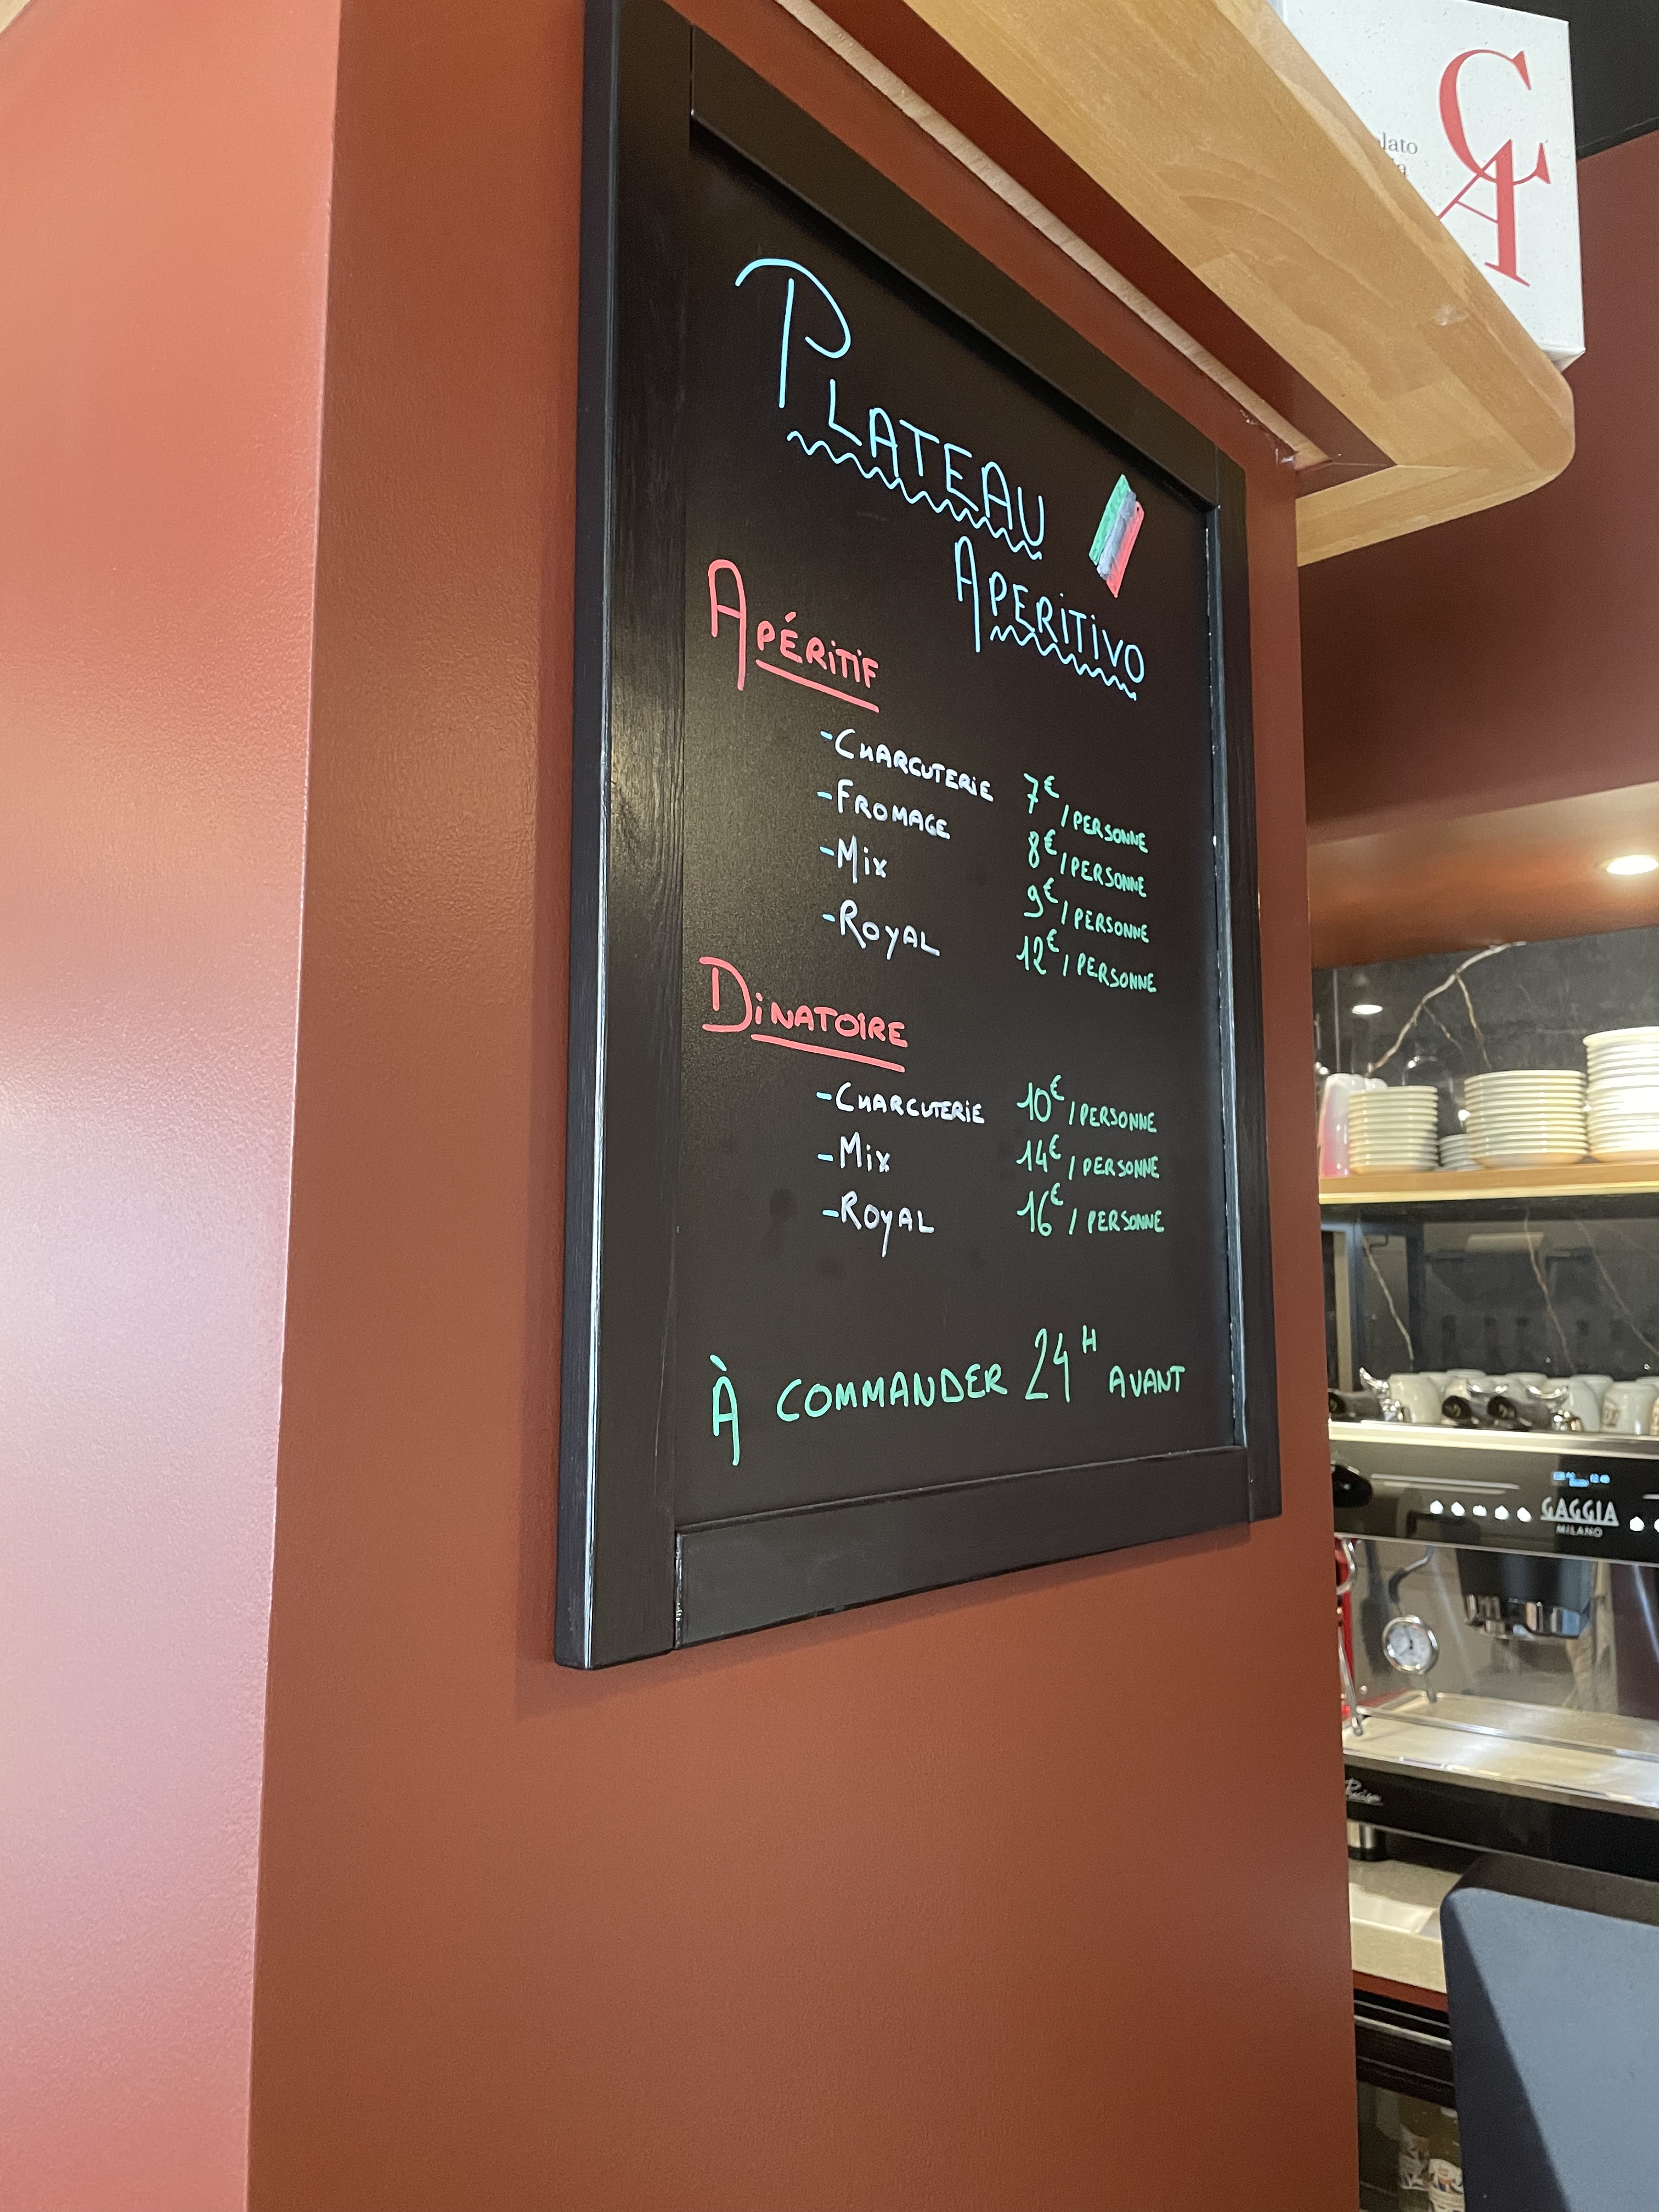 PLATEAU
APERITIVO
APÉRITIF
-CHARCUTERIE 7€/PERSONNE
-FROMAGE 8€/PERSONNE
-MIX 9€/PERSONNE
-ROYAL 12€/PERSONNE
DINATOIRE
-CHARCUTERIE 10€/PERSONNE
-MIX 14€/PERSONNE
-ROYAL 16€/PERSONNE
À COMMANDER 24H AVANT
CA
GAGGIA
MILANO